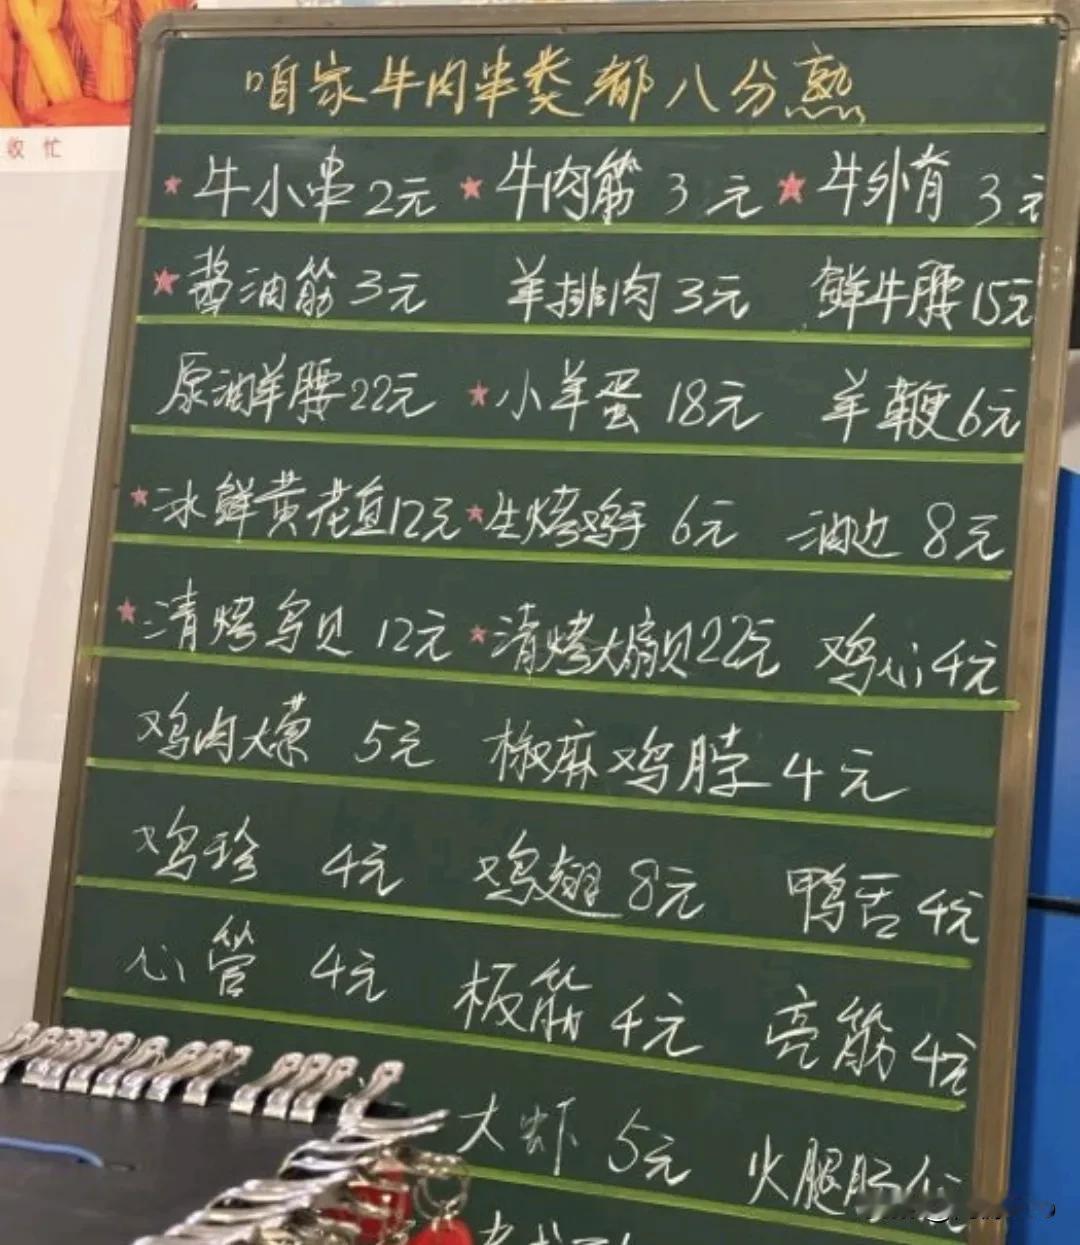 收忙
咱家牛肉串类都八分熟
★牛小串2元 ★牛肉筋 3元 ★牛外脊 3元
★酱油筋3元 羊排肉3元 鲜牛腰15元
原油羊腰22元 ★小羊蛋18元 羊鞭6元
★冰鲜黄花鱼12元 ★生烤鸡手 6元 油边 8元
★清烤鸟贝 12元 ★清烤大扇贝22元 鸡心4元
鸡肉大葱 5元 椒麻鸡脖4元
鸡珍 4元 鸡翅8元 鸭舌4元
心管 4元 板筋4元 亮筋4元
大虾 5元 火腿肠